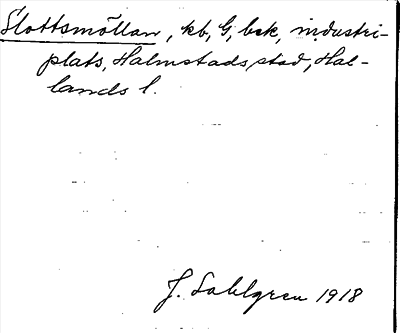 Slottsmöllan, kb, G, bek, industri-
plats, Halmstads stad, Hal-
lands l.
J. Sahlgren 1918